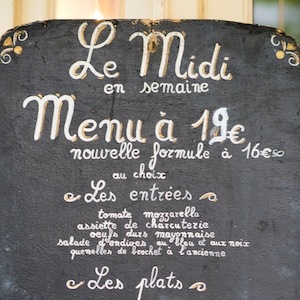 Le Midi
en semaine
Menu à 19€
nouvelle formule à 16€50
au choix
Les entrées
tomate mozzarella
assiette de charcuterie
oeufs durs mayonnaise
salade d'endives au bleu et aux noix
quenelles de brochet à l'ancienne
Les plats